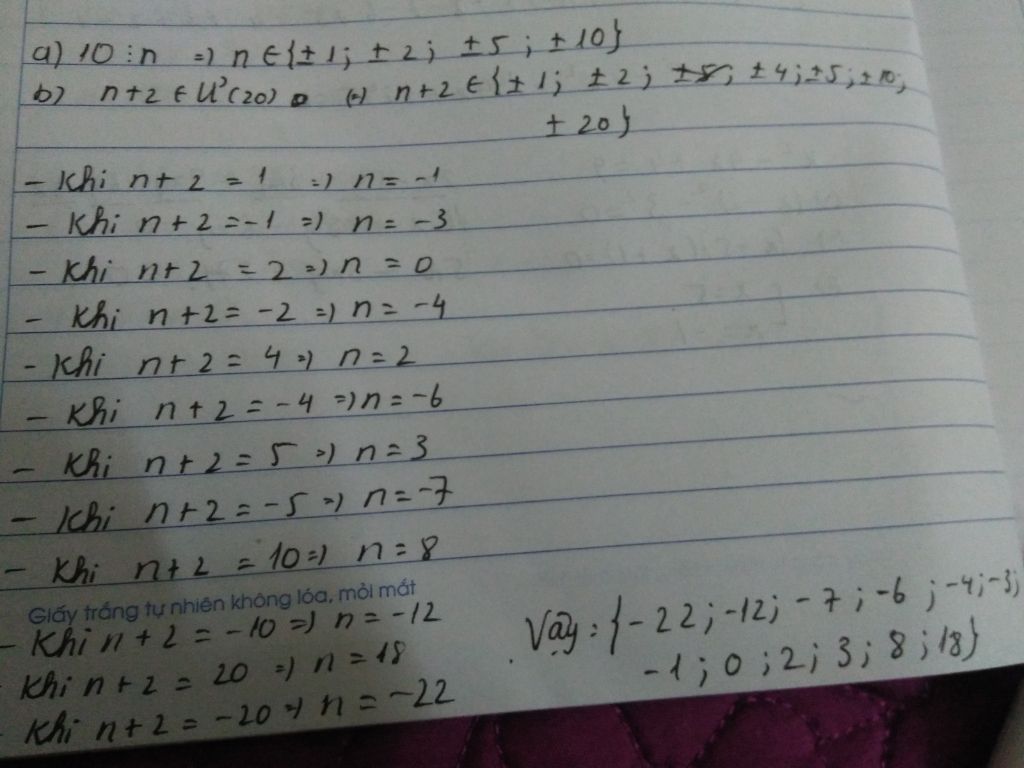 a) 10 ⋮ n => n ∈ {±1; ±2; ±5; ±10}
b) n+2 ∈ Ư(20) (=) n+2 ∈ {±1; ±2; ±4; ±5; ±10;
±20}
- Khi n+2 = 1 => n = -1
- Khi n+2 = -1 => n = -3
- Khi n+2 = 2 => n = 0
- Khi n+2 = -2 => n = -4
- Khi n+2 = 4 => n = 2
- Khi n+2 = -4 => n = -6
- Khi n+2 = 5 => n = 3
- Khi n+2 = -5 => n = -7
- Khi n+2 = 10 => n = 8
Giấy trắng tự nhiên không lóa, mỏi mắt
- Khi n+2 = -10 => n = -12
- Khi n+2 = 20 => n = 18
- Khi n+2 = -20 => n = -22
Vậy: {-22; -12; -7; -6; -4; -3;
-1; 0; 2; 3; 8; 18}